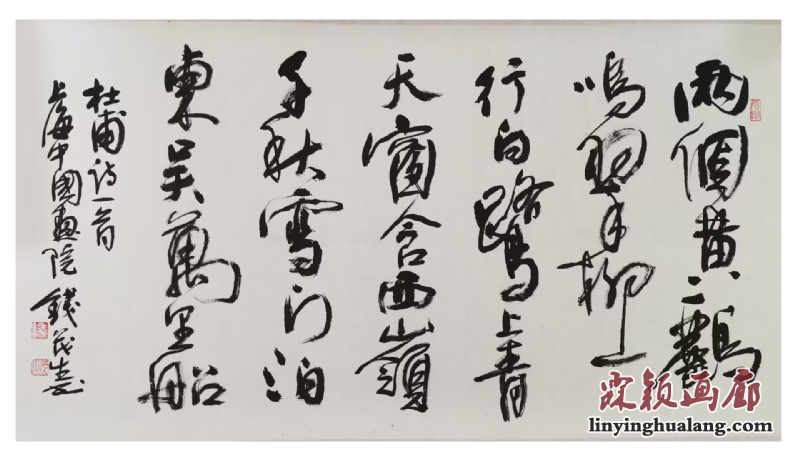 兩個黄鸝
鳴翠柳一
行白鷺上青
天窗含西嶺
千秋雪门泊
東吴萬里船
杜甫诗一首
上海中國畫院 錢茂生书
霖颖画廊
linyinghualang.com